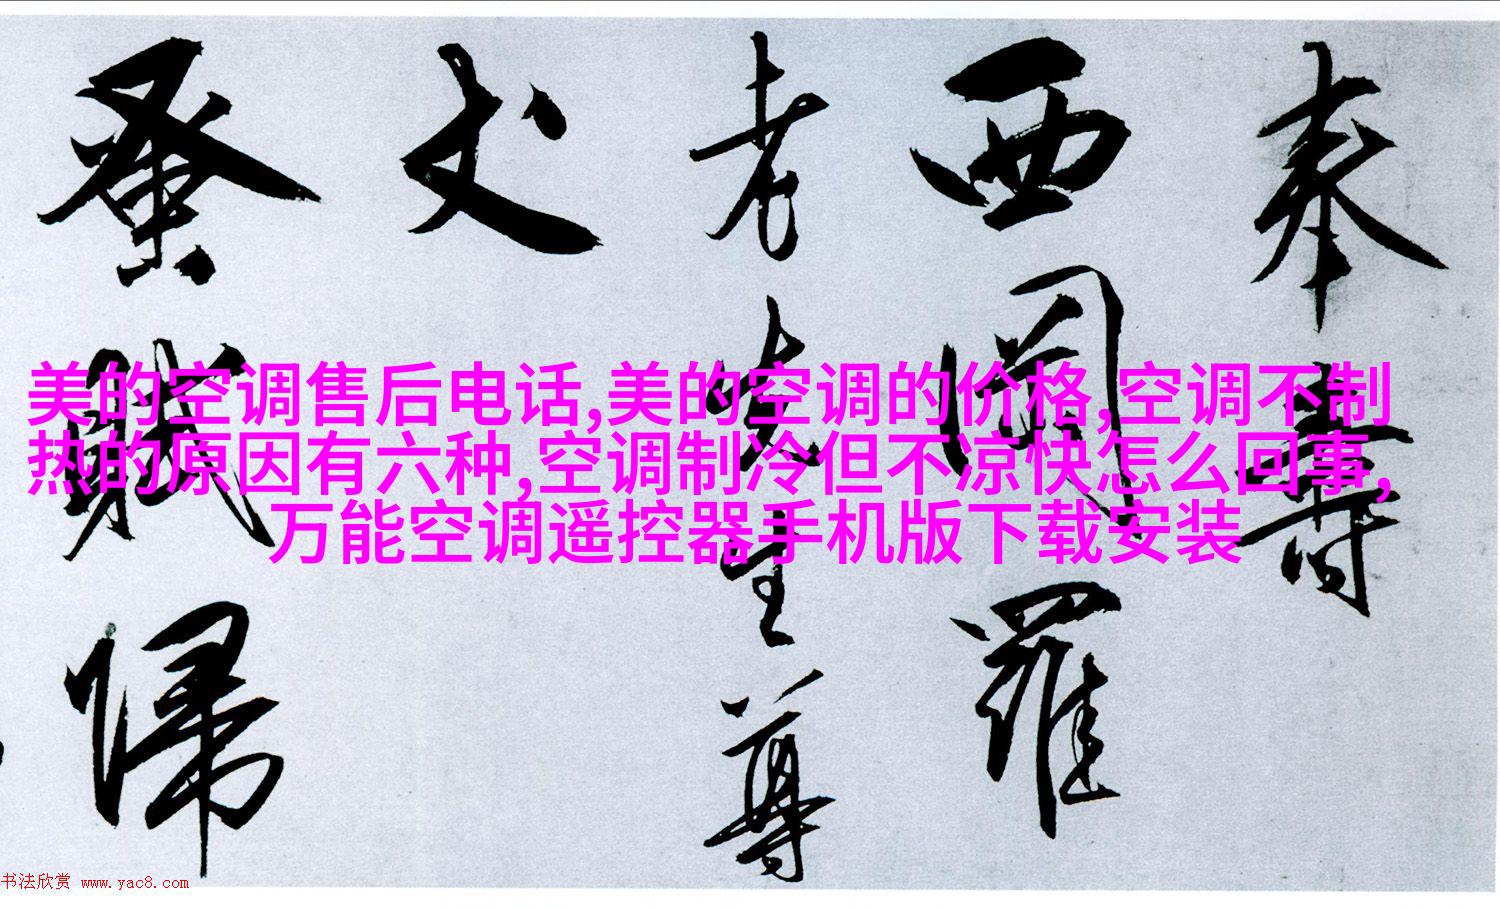 奉壽
西園羅
老先生尊
丈
蚤賦歸
美的空调售后电话,美的空调的价格,空调不制
热的原因有六种,空调制冷但不凉快怎么回事,
万能空调遥控器手机版下载安装
书法欣赏 www.yac8.com